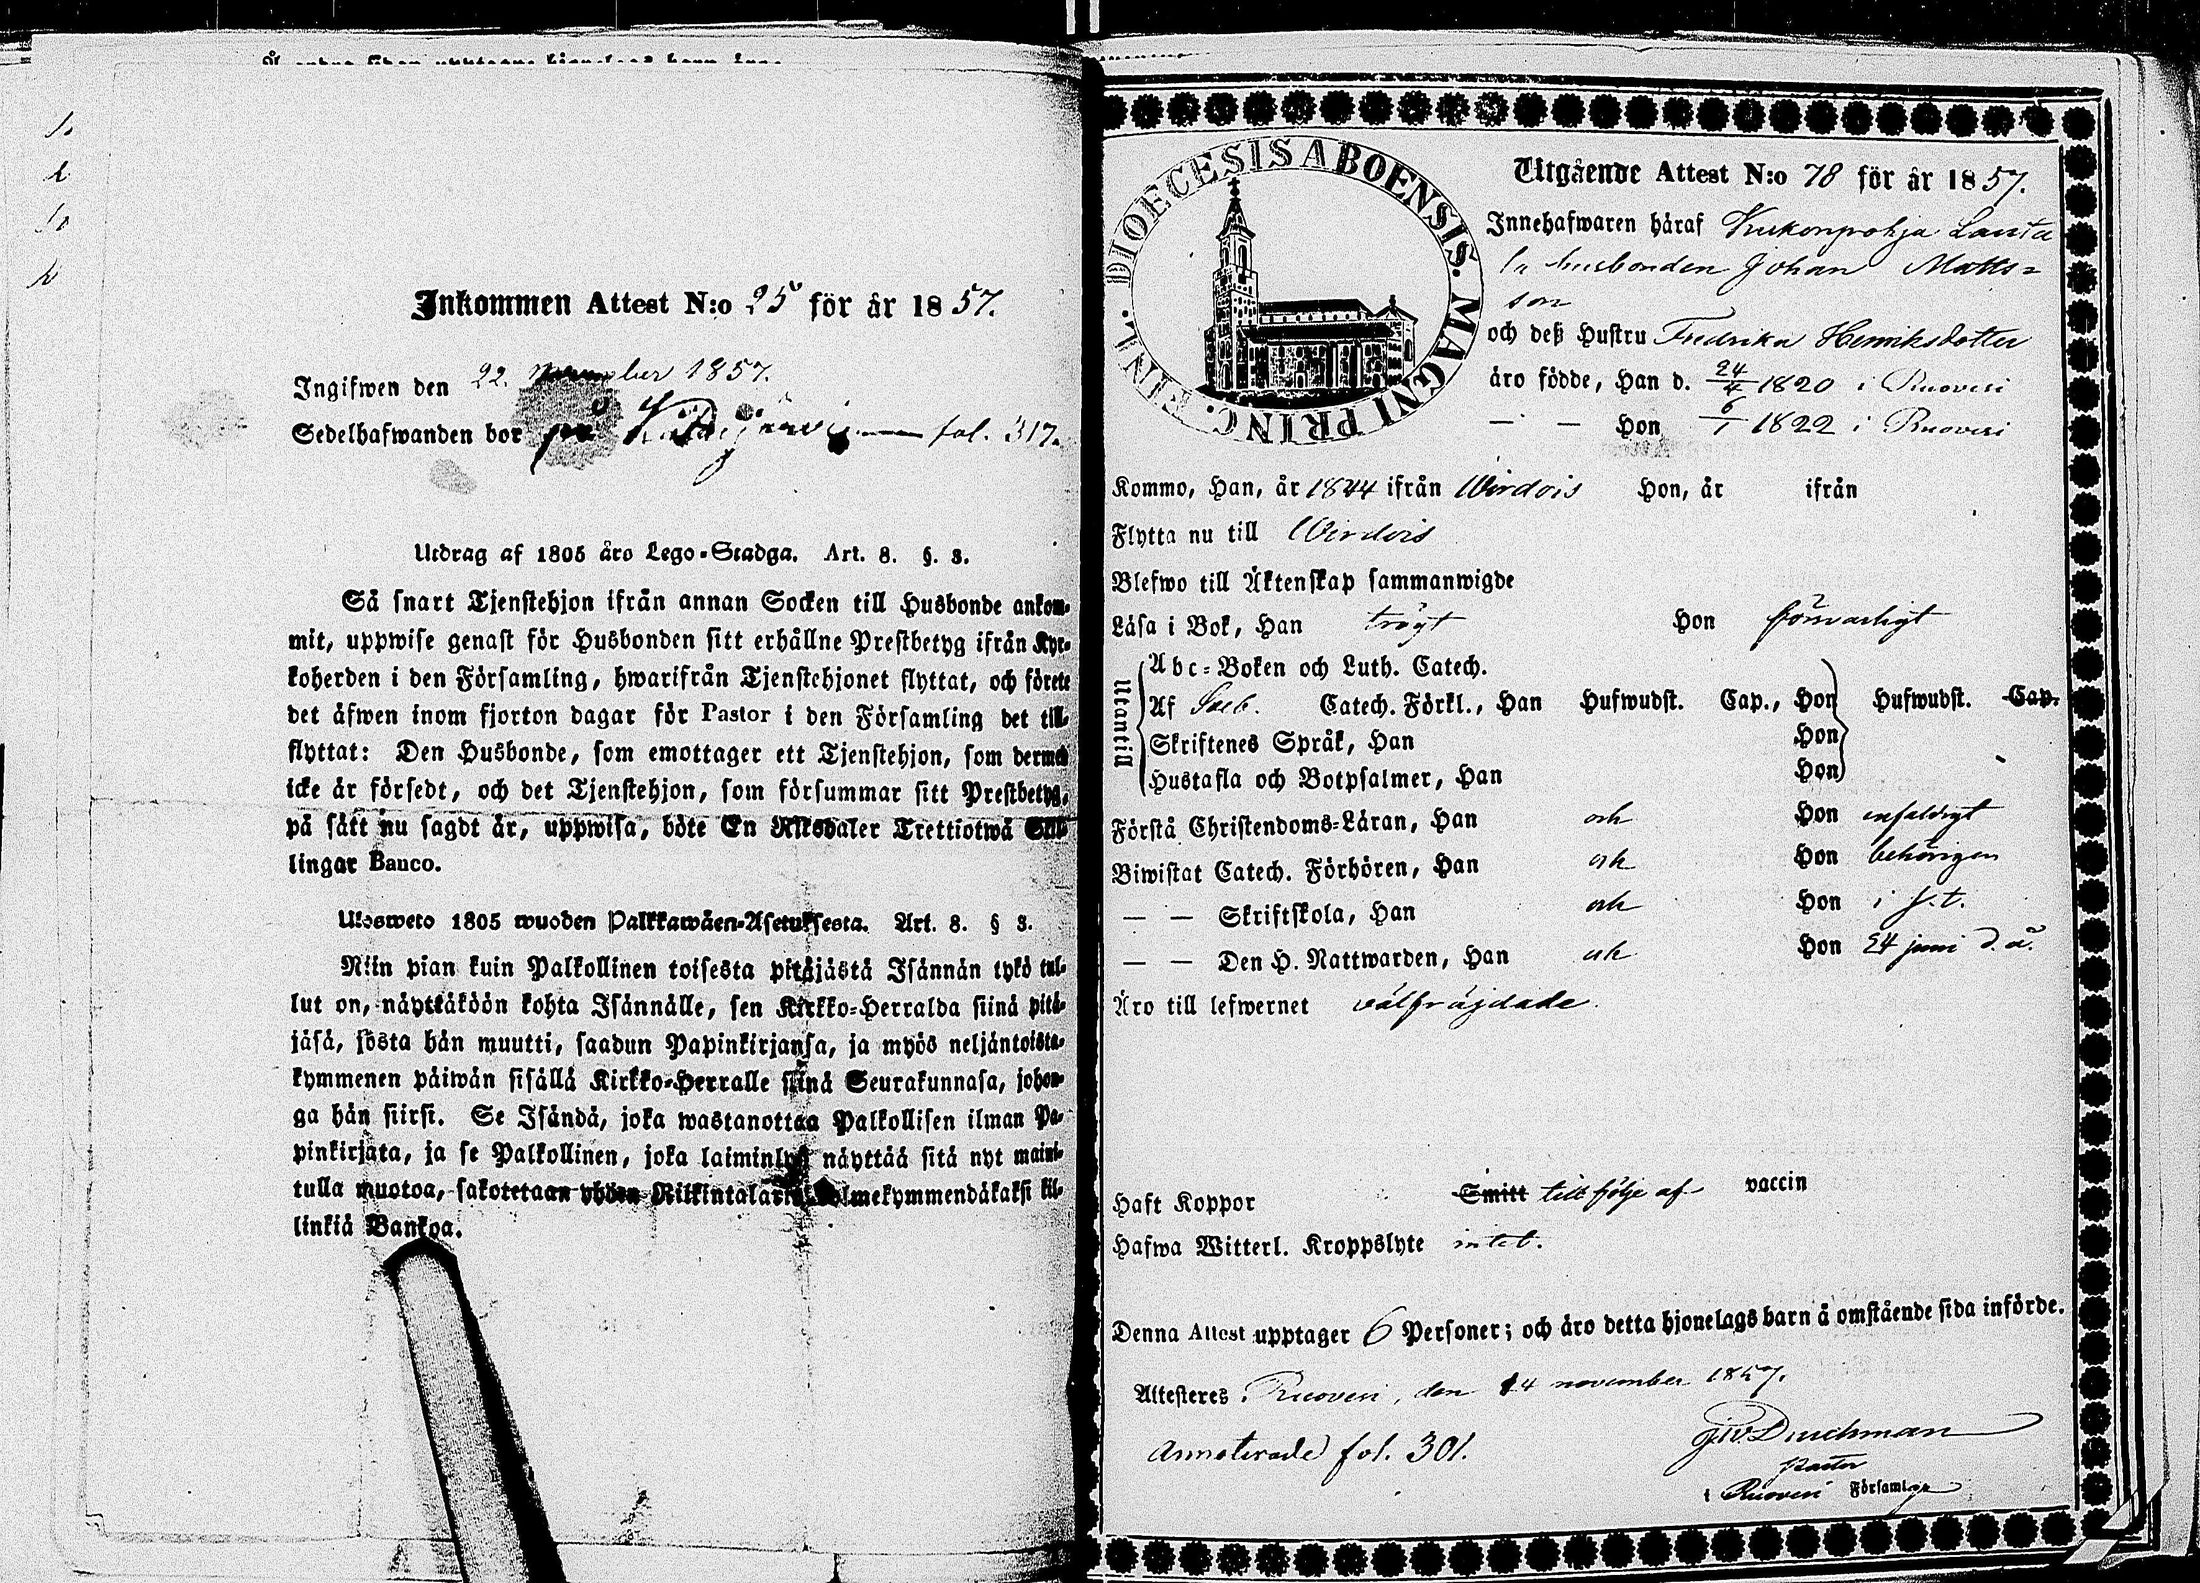 Inkommen Attest N:o 25 för år 1857.
Ingifwen den 22. november 1857.
Sedelhafwanden bor på fol. 317.
Utdrag af 1805 åro Lego-Stadga. Art. 8. §. 3.
Så snart Tjenstehjon ifrån annan Socken till Husbonde ankom-
mit, uppwise genast för Husbonden sitt erhållne Prestbetyg ifrån Kyr-
koherden i den Församling, hwarifrån Tjenstehjonet flyttat, och förete
det äfwen inom fjorton dagar för Pastor i den Församling det till-
flyttat: Den Husbonde, som emottager ett Tjenstehjon, som dermed
icke är försedt, och det Tjenstehjon, som försummar sitt Prestbetyg,
på sätt nu sagdt är, uppwisa, böte En Riksdaler Trettiotwå Skil-
lingar Banco.
Ulosweto 1805 wuoden Palkkawäen-Asetuksesta. Art. 8. § 3.
Niin pian kuin Palkollinen toisesta pitäjästä Isännän tykö tul-
lut on, näyttäköön kohta Isännälle, sen Kirkko-Herralda siinä pitä-
jäsä, josta hän muutti, saadun Papinkirjansa, ja myös neljäntoista-
kymmenen päiwän sisällä Kirkko-Herralle siinä Seurakunnasa, johon-
ga hän siirsi. Se Isändä, joka wastanottaa Palkollisen ilman Pa-
pinkirjata, ja se Palkollinen, joka laiminlyö näyttää sitä nyt maini-
tulla muotoa, sakotetaan yhden Riikintalarin kolmekymmendäkaksi kil-
linkiä Bankoa.
DIOECESIS ABOENSIS. MAGNI PRINC. FINL.
Utgående Attest N:o 78 för år 1857.
Innehafwaren häraf Kukonpohja Lauta
la husbonden Johan Matts=
son
och deß Hustru Fredrika Henriksdotter
äro födde, Han d. 24/4 1820 i Ruovesi
— — Hon 6/1 1822 i Ruovesi
Kommo, Han, år 1844 ifrån Wirdois Hon, år ifrån
Flytta nu till Wirdois
Blefwo till Äktenskap sammanwigde
Läsa i Bok, Han trögt Hon försvarligt
Utantill
Abc-Boken och Luth. Catech.
Af Sveb. Catech. Förkl., Han Hufwudst. Cap., Hon Hufwudst. Cap.
Skriftenes Språk, Han Hon
Hustafla och Botpsalmer, Han Hon
Förstå Christendoms-Läran, Han och Hon enfaldigt
Biwistat Catech. Förhören, Han och Hon behörigen
— — Skriftskola, Han och Hon i s. t.
— — Den H. Nattwarden, Han och Hon 24 juni d. å.
Äro till lefwernet välfräjdade.
Haft Koppor Smitt till följe af vaccin
Hafwa Witterl. Kroppslyte intet.
Denna Attest upptager 6 Personer; och äro detta hjonelags barn å omstående sida införde.
Attesteres Ruovesi, den 14 november 1857.
Annoterade fol. 301.
pastor
i Ruovesi Församling